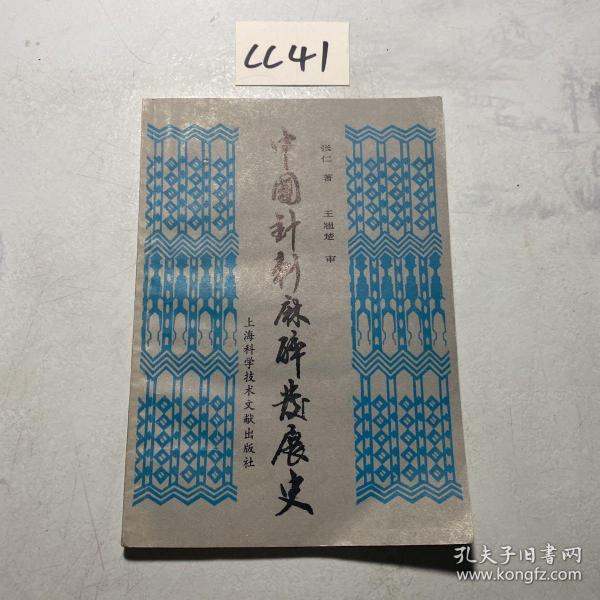 CC41
张仁 著 王翘楚 审
中國针刺麻醉发展史
上海科学技术文献出版社
孔夫子旧书网
www.kongfz.com